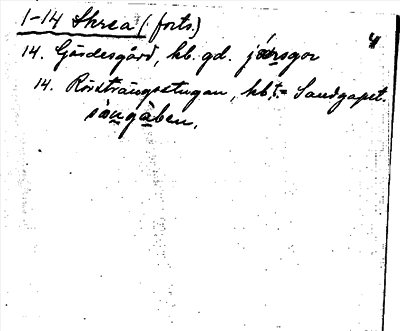 1-14 Skrea (forts.)
4
14. Gärdesgård, hb. gd. jærsgor
14. Rörsträngsstugan, hbt. = Sandgapet.
sàngàben.